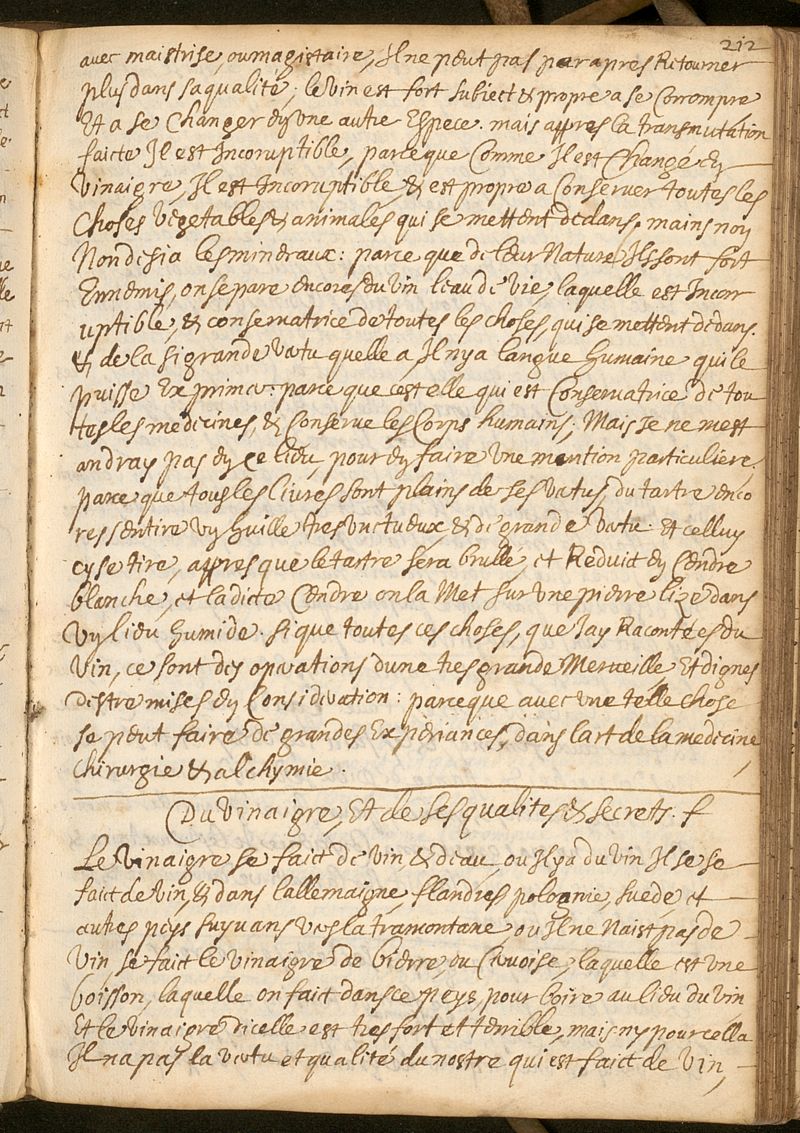 212
avec maistrise, ou magistaire, Il ne peut pas par apres Retourner
plus dans sa qualité; le vin est fort subiect & propre a se Corrompre
Et a se Changer en une autre Espece. mais appres la transmutation
faicte Il est Incoruptible, parce que Comme Il est Changé En
Vinaigre, Il est Incoruptible, & est propre a Conserver toutes les
Choses vegetables & animales qui se mettent dedans, mains non
Non desia les mineraux: parce que de leur Nature Ils sont fort
Ennemis, on separe encores du vin l'eau de vie, laquelle est Incor
uptible, & conservatrice de toutes les choses, qui se mettent dedans.
& de la si grande vertu quelle a, Il nya langue humaine qui le
puisse Exprimer: parce que cest elle qui est Conservatrice de tou
ttes les medecines, & Conserve les Corps humains; Mais Je ne mest
andray pas en ce lieu, pour en faire une mention particuliere,
parce que tous les livres sont plains de ses vertus, du tartre enco
res sen tire un huille tres unctueux, & de grande vertu. Et celluy
cy se tire, appres que le tartre sera brullé, et Reduict en Cendre
blanche, et la dicte Cendre on la Met sur une pierre lize dans
un lieu humide. si que toutes ces choses, que Jay Racontées du
vin, ce sont des operations dune tres grande Merveille, Et dignes
destre mises en Consideration: parce que avec une telle chose
se peut faire de grandes Experiances, dans lart de la medecine,
chirurgie & alchymie.
Du vinaigre, Et de ses qualites & secrets. f
Le vinaigre se faict de vin, & deau, ou Il ya du vin Il se se
faict de vin, & dans lallemaigne, flandres polonie, suede, et
autres peys suyvans vers la tramontane, ou Il ne Naist pas de
Vin se faict le vinaigre de bierre, ou Cervoise, laquelle est une
boisson, laquelle on faict dans ce peys, pour boire au lieu du vin
Et le vinaigre dicelle est tres fort et terrible, mais ny pour cella
Il na pas la vertu et qualité du nostre qui est faict de vin,